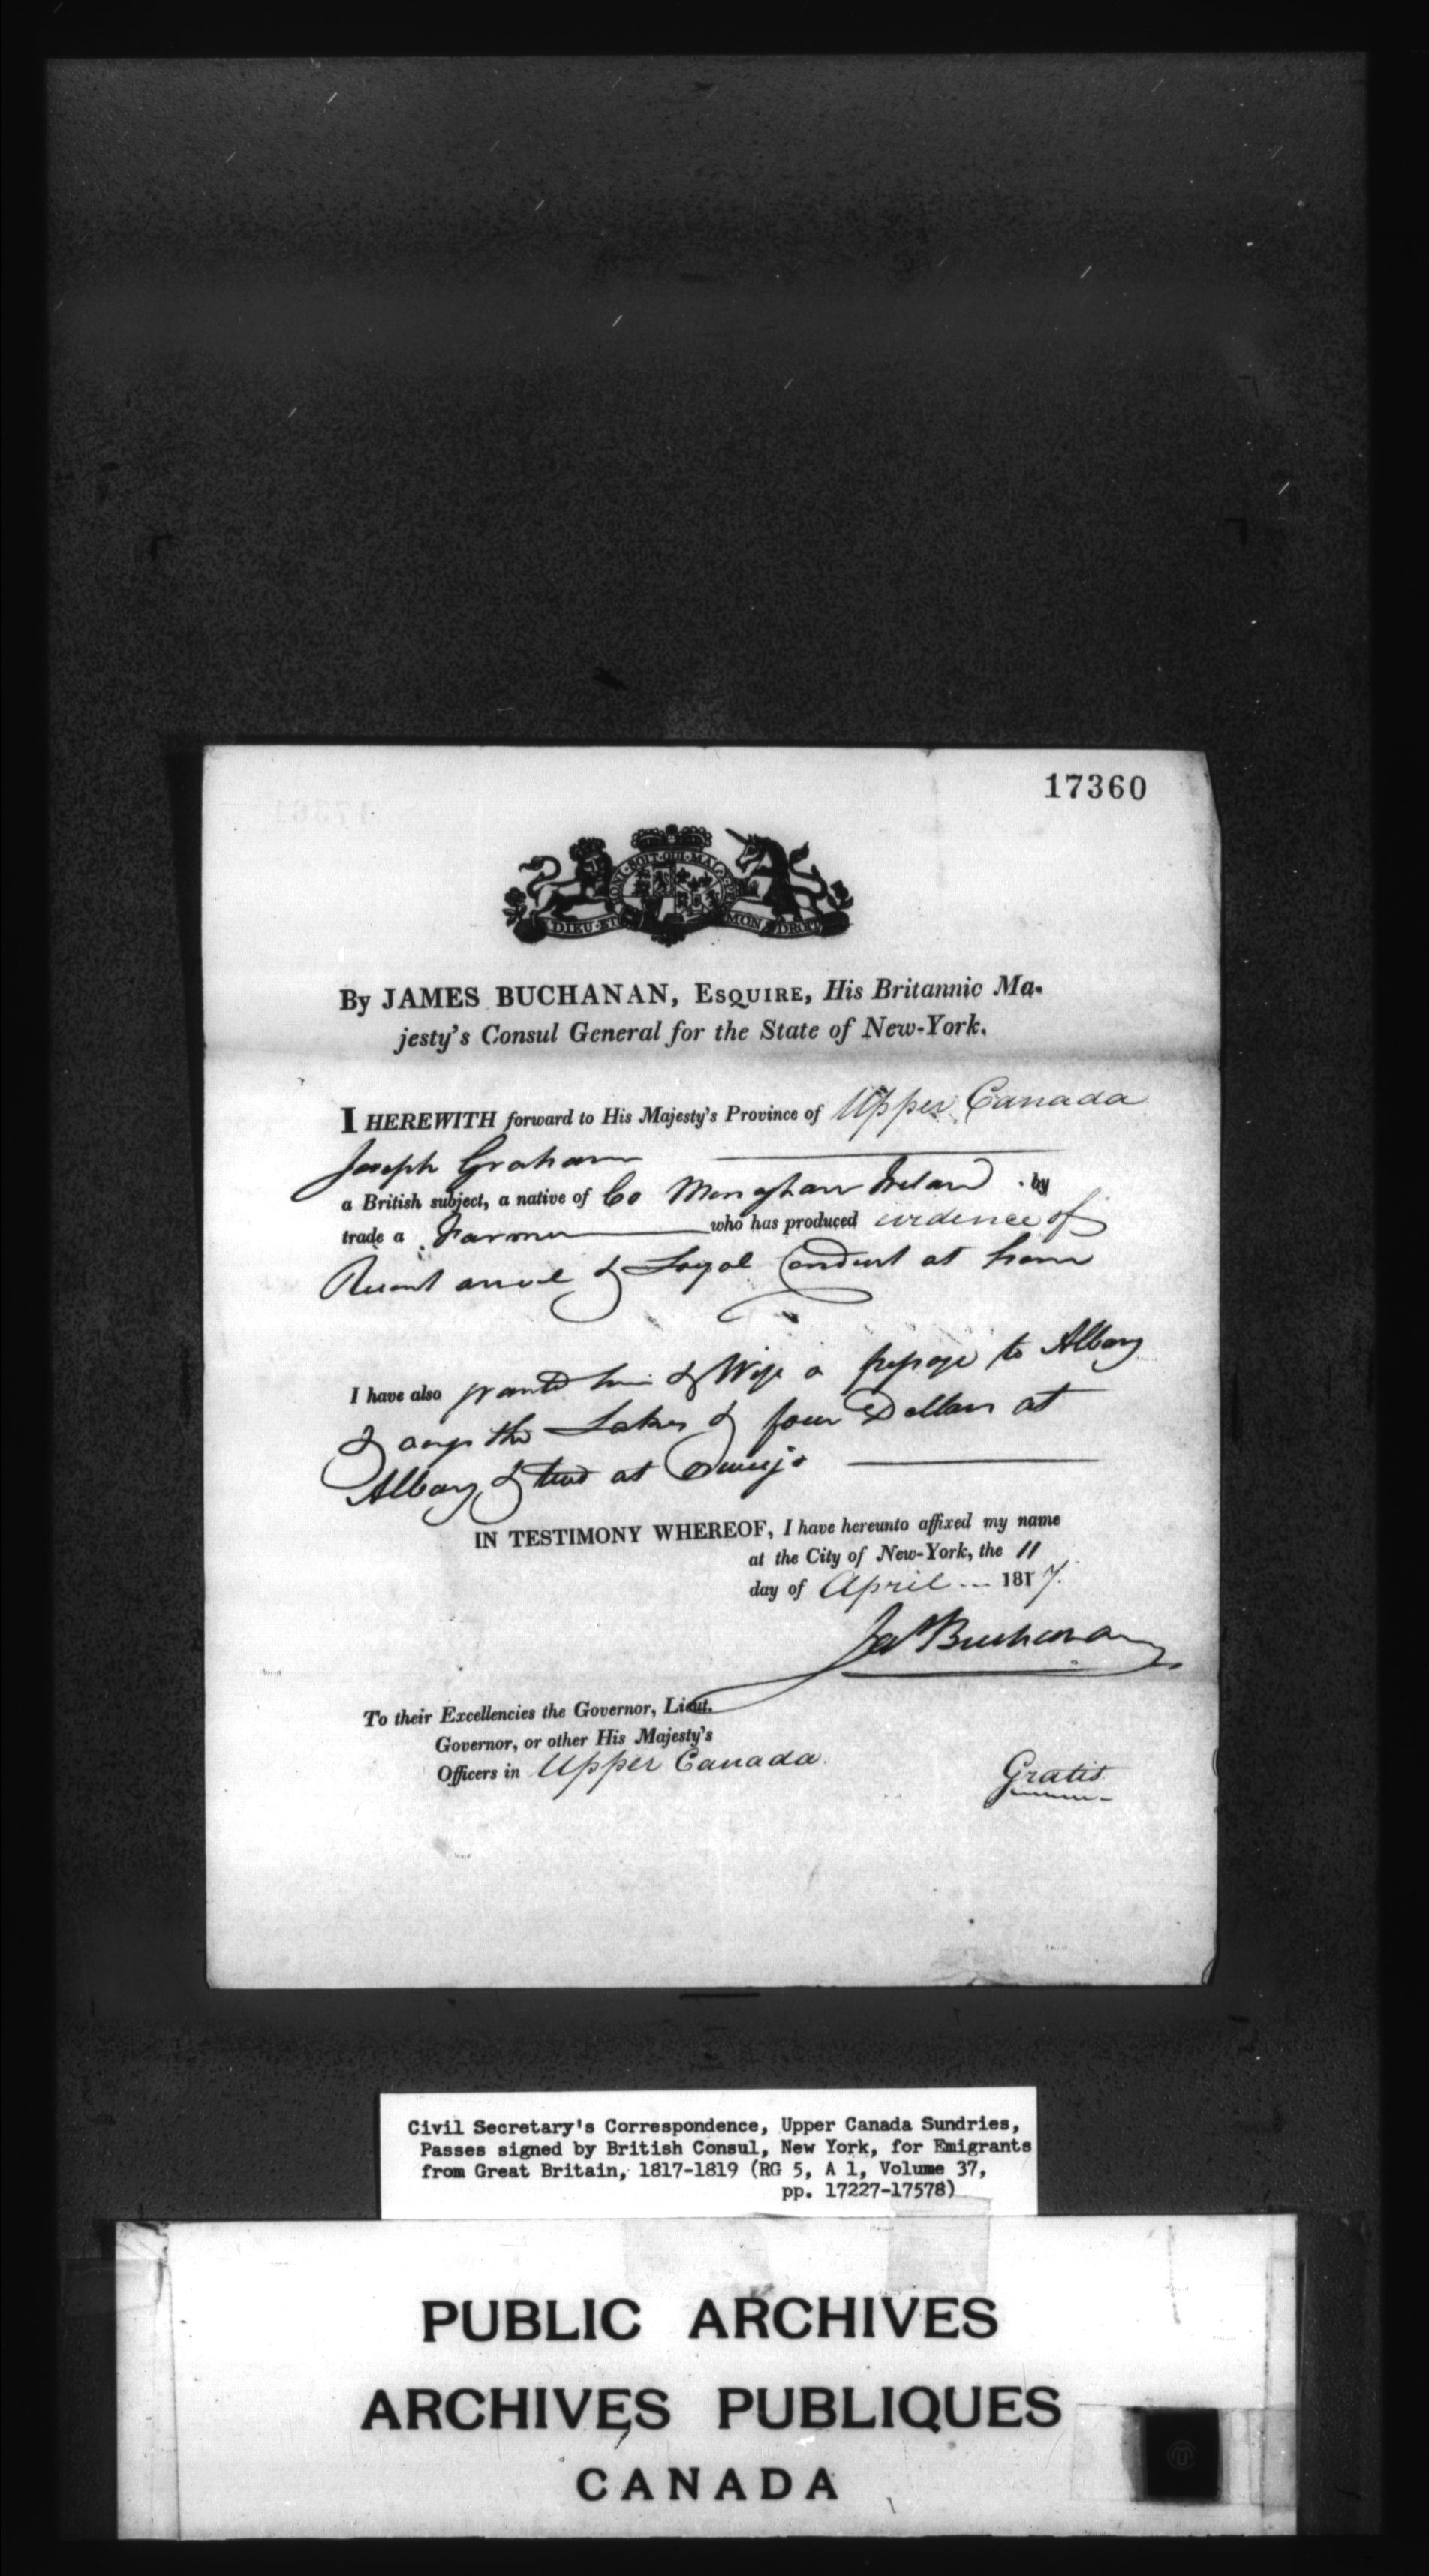 17360
HONI·SOIT·QUI·MAL·Y·PE
DIEU·ET MON DROIT
By JAMES BUCHANAN, ESQUIRE, His Britannic Ma-
jesty's Consul General for the State of New-York.
I HEREWITH forward to His Majesty's Province of Upper Canada
Joseph Graham
a British subject, a native of Co Monaghan Ireland . by
trade a Farmer who has produced evidence of
Recent arival & Loyal Conduct at home
I have also granted him & Wife a passage to Albany
& the Lakes & four Dollars at
Albany & two at Oswego
IN TESTIMONY WHEREOF, I have hereunto affixed my name
at the City of New-York, the 11
day of April 1817.
Jas Buchanan
To their Excellencies the Governor, Lieut.
Governor, or other His Majesty's
Officers in Upper Canada.
Gratis
Civil Secretary's Correspondence, Upper Canada Sundries,
Passes signed by British Consul, New York, for Emigrants
from Great Britain, 1817-1819 (RG 5, A 1, Volume 37,
pp. 17227-17578)
PUBLIC ARCHIVES
ARCHIVES PUBLIQUES
CANADA